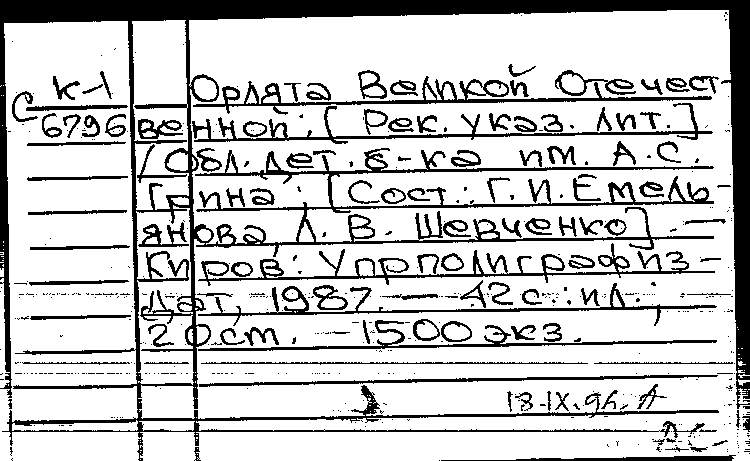 К-1 Орлята Великой Отечест-
С 6796 венной: [Рек. указ. лит.]
/ Обл. дет. б-ка им. А.С.
Грина; [Сост.: Г.И.Емель-
янова, Л. В. Шевченко]. —
Киров: Упрполиграфиз-
дат, 1987. — 42с.: ил.;
20см. — 1500 экз.
18-IX.96. А
АС